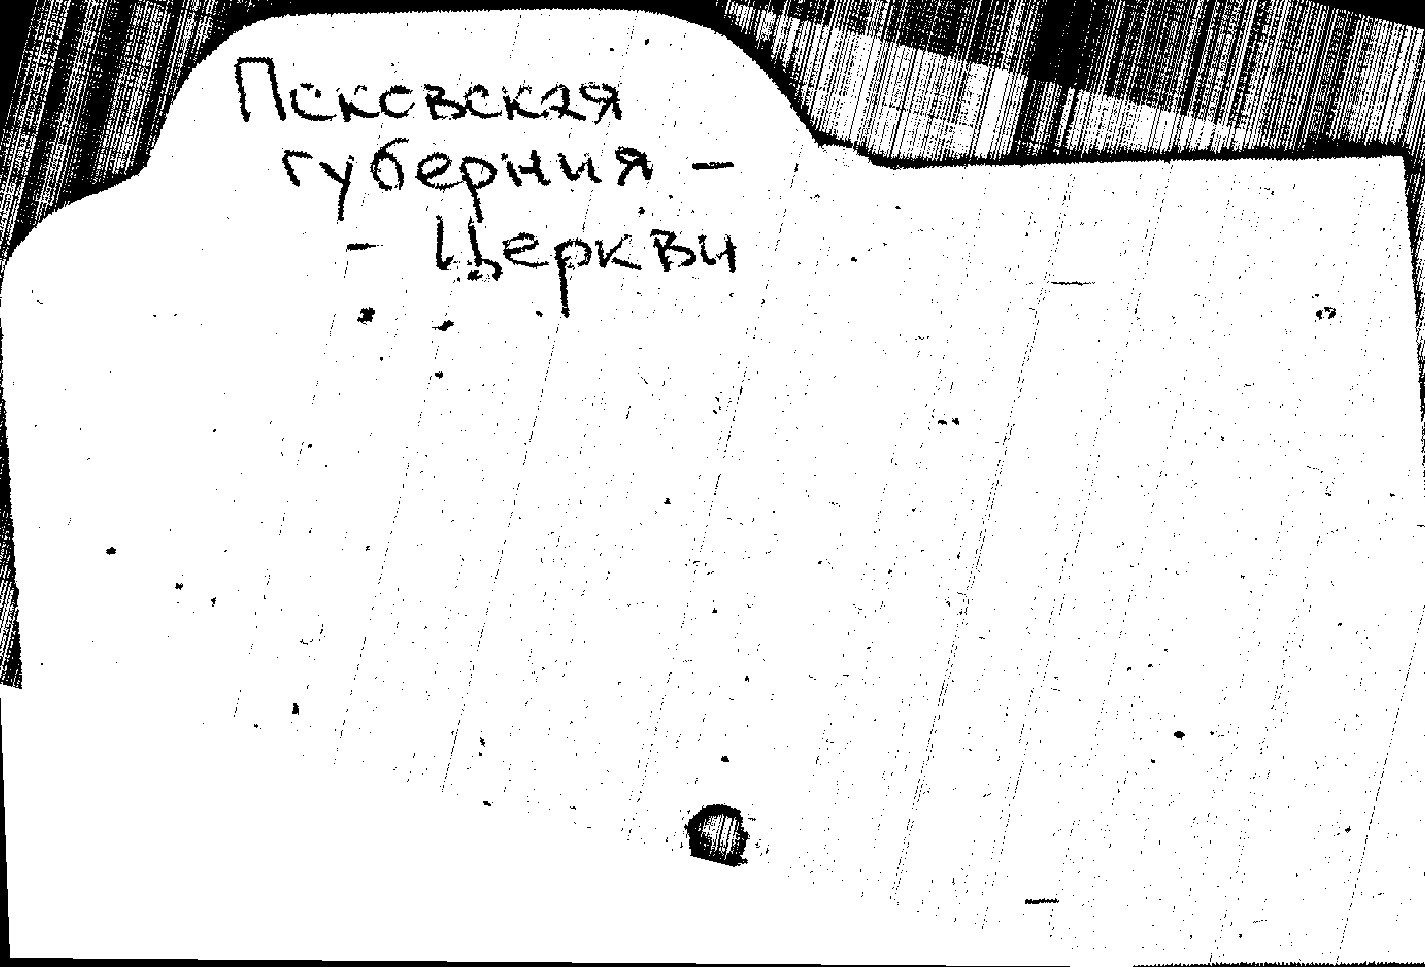 Псковская
губерния -
- Церкви